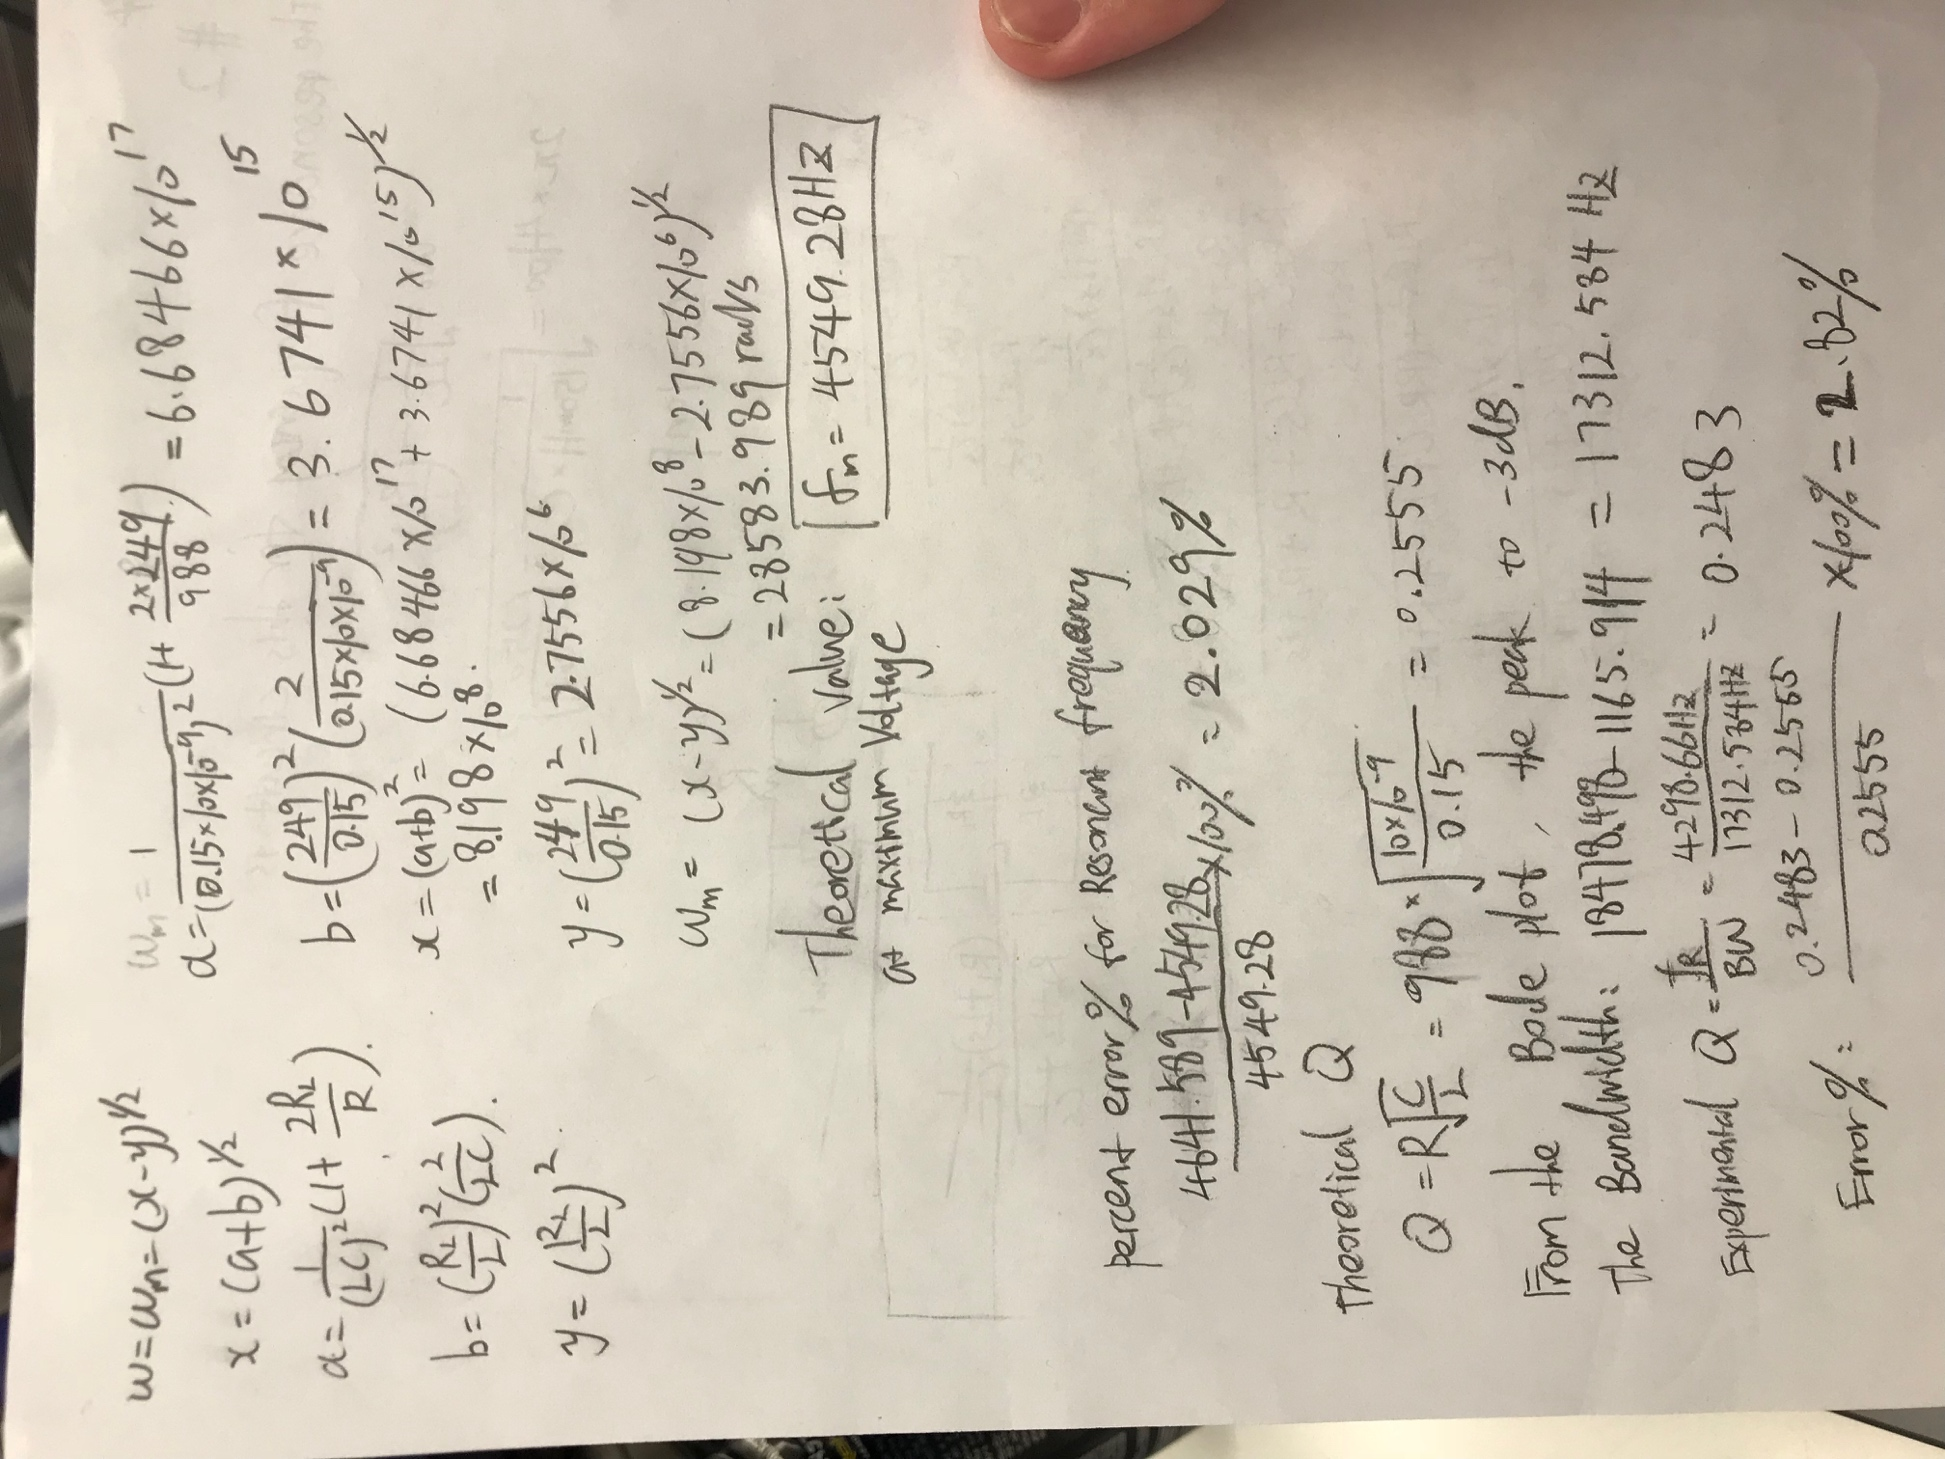 w=w_m=(x-y)^1/2
x=(a+b)^1/2
a=1/(LC)^2(1+2R_L/R).
b=(R_L/L)^2(2/LC).
y=(R_L/L)^2.
w_m=1
a=1/(0.15×10×10^-9)^2(1+2×249/988)=6.68466×10^17
b=(249/0.15)^2(2/0.15×10×10^-9)=3.6741×10^15
x=(a+b)^1/2=(6.68466×10^17+3.6741×10^15)^1/2
=8.198×10^8.
y=(249/0.15)^2=2.7556×10^6
w_m=(x-y)^1/2=(8.198×10^8-2.7556×10^6)^1/2
=28583.989rad/s
Theoretical value: f_m=4549.28Hz
at maximum Voltage
percent error% for Resonent frequency
4641.589-4549.28/4549.28×100%=2.029%
Theoretical Q
Q=R√C/L=988×√10×10^-9/0.15=0.2555
From the Bode plot, the peak to -3dB.
the Bandwidth: 18478.498-1165.914=17312.584Hz
Experimental Q=f_R/BW=4298.66Hz/17312.584Hz=0.2483
Error%: 0.2483-0.2555/0.2555×100%=2.82%